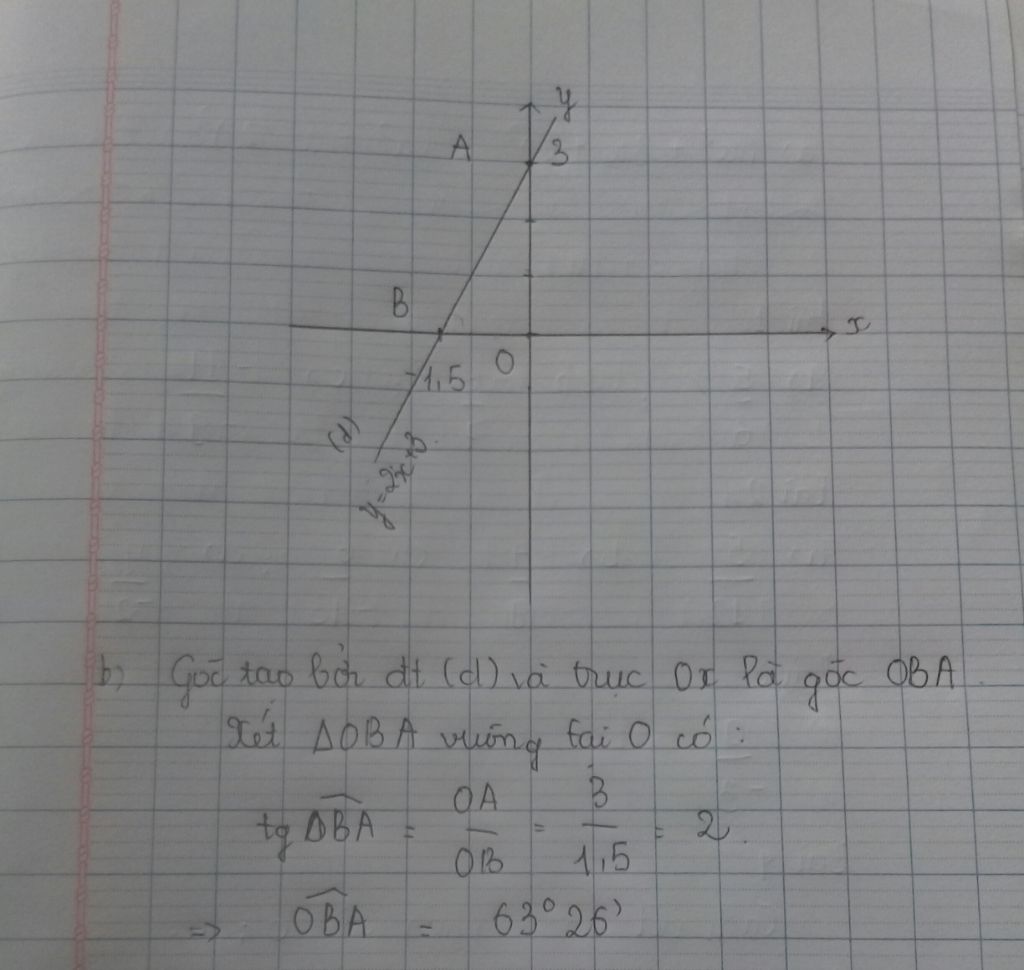 y
A 3
B
x
O
-1,5
(d)
y=2x+3
b) Góc tạo bởi đt (d) và trục Ox là góc OBA.
Xét ΔOBA vuông tại O có :
tg OBA = OA/OB = 3/1,5 = 2.
=> OBA = 63° 26'